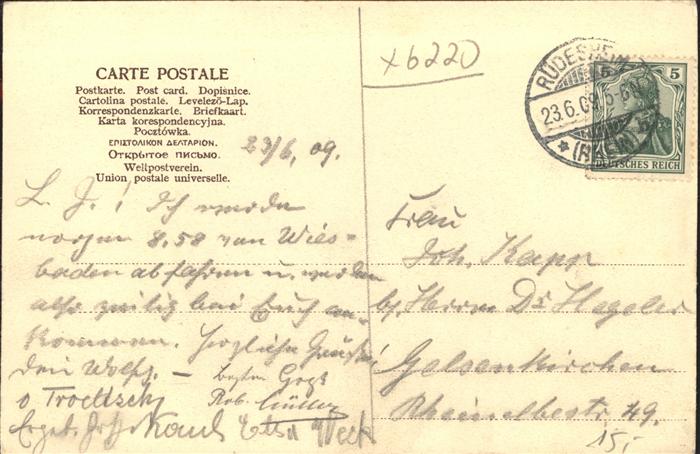 x6220
CARTE POSTALE
Postkarte. Post card. Dopisnice.
Cartolina postale. Levelező-Lap.
Korrespondenzkarte. Briefkaart.
Karta korespondencyjna.
Pocztówka.
ΕΠΙΣΤΟΛΙΚΟΝ ΔΕΛΤΑΡΙΟΝ.
Открытое письмо.
Weltpostverein.
Union postale universelle.
23/6. 09.
L. J.! Ich werde
morgen 8.58 von Wies-
baden abfahren u. werden
also zeitig bei Euch an-
kommen. Herzliche Grüße!
Dein Wolfg. – besten Gruß
Troeltsch Rob. Müller
RÜDESHEIM
23.6.09. 5-6N
* (RHEIN)
5 5
DEUTSCHES REICH
Frau
Joh. Kapp
b/ Herrn Dr Hegeler
Gelsenkirchen
Rheinelbestr. 49.
15,-